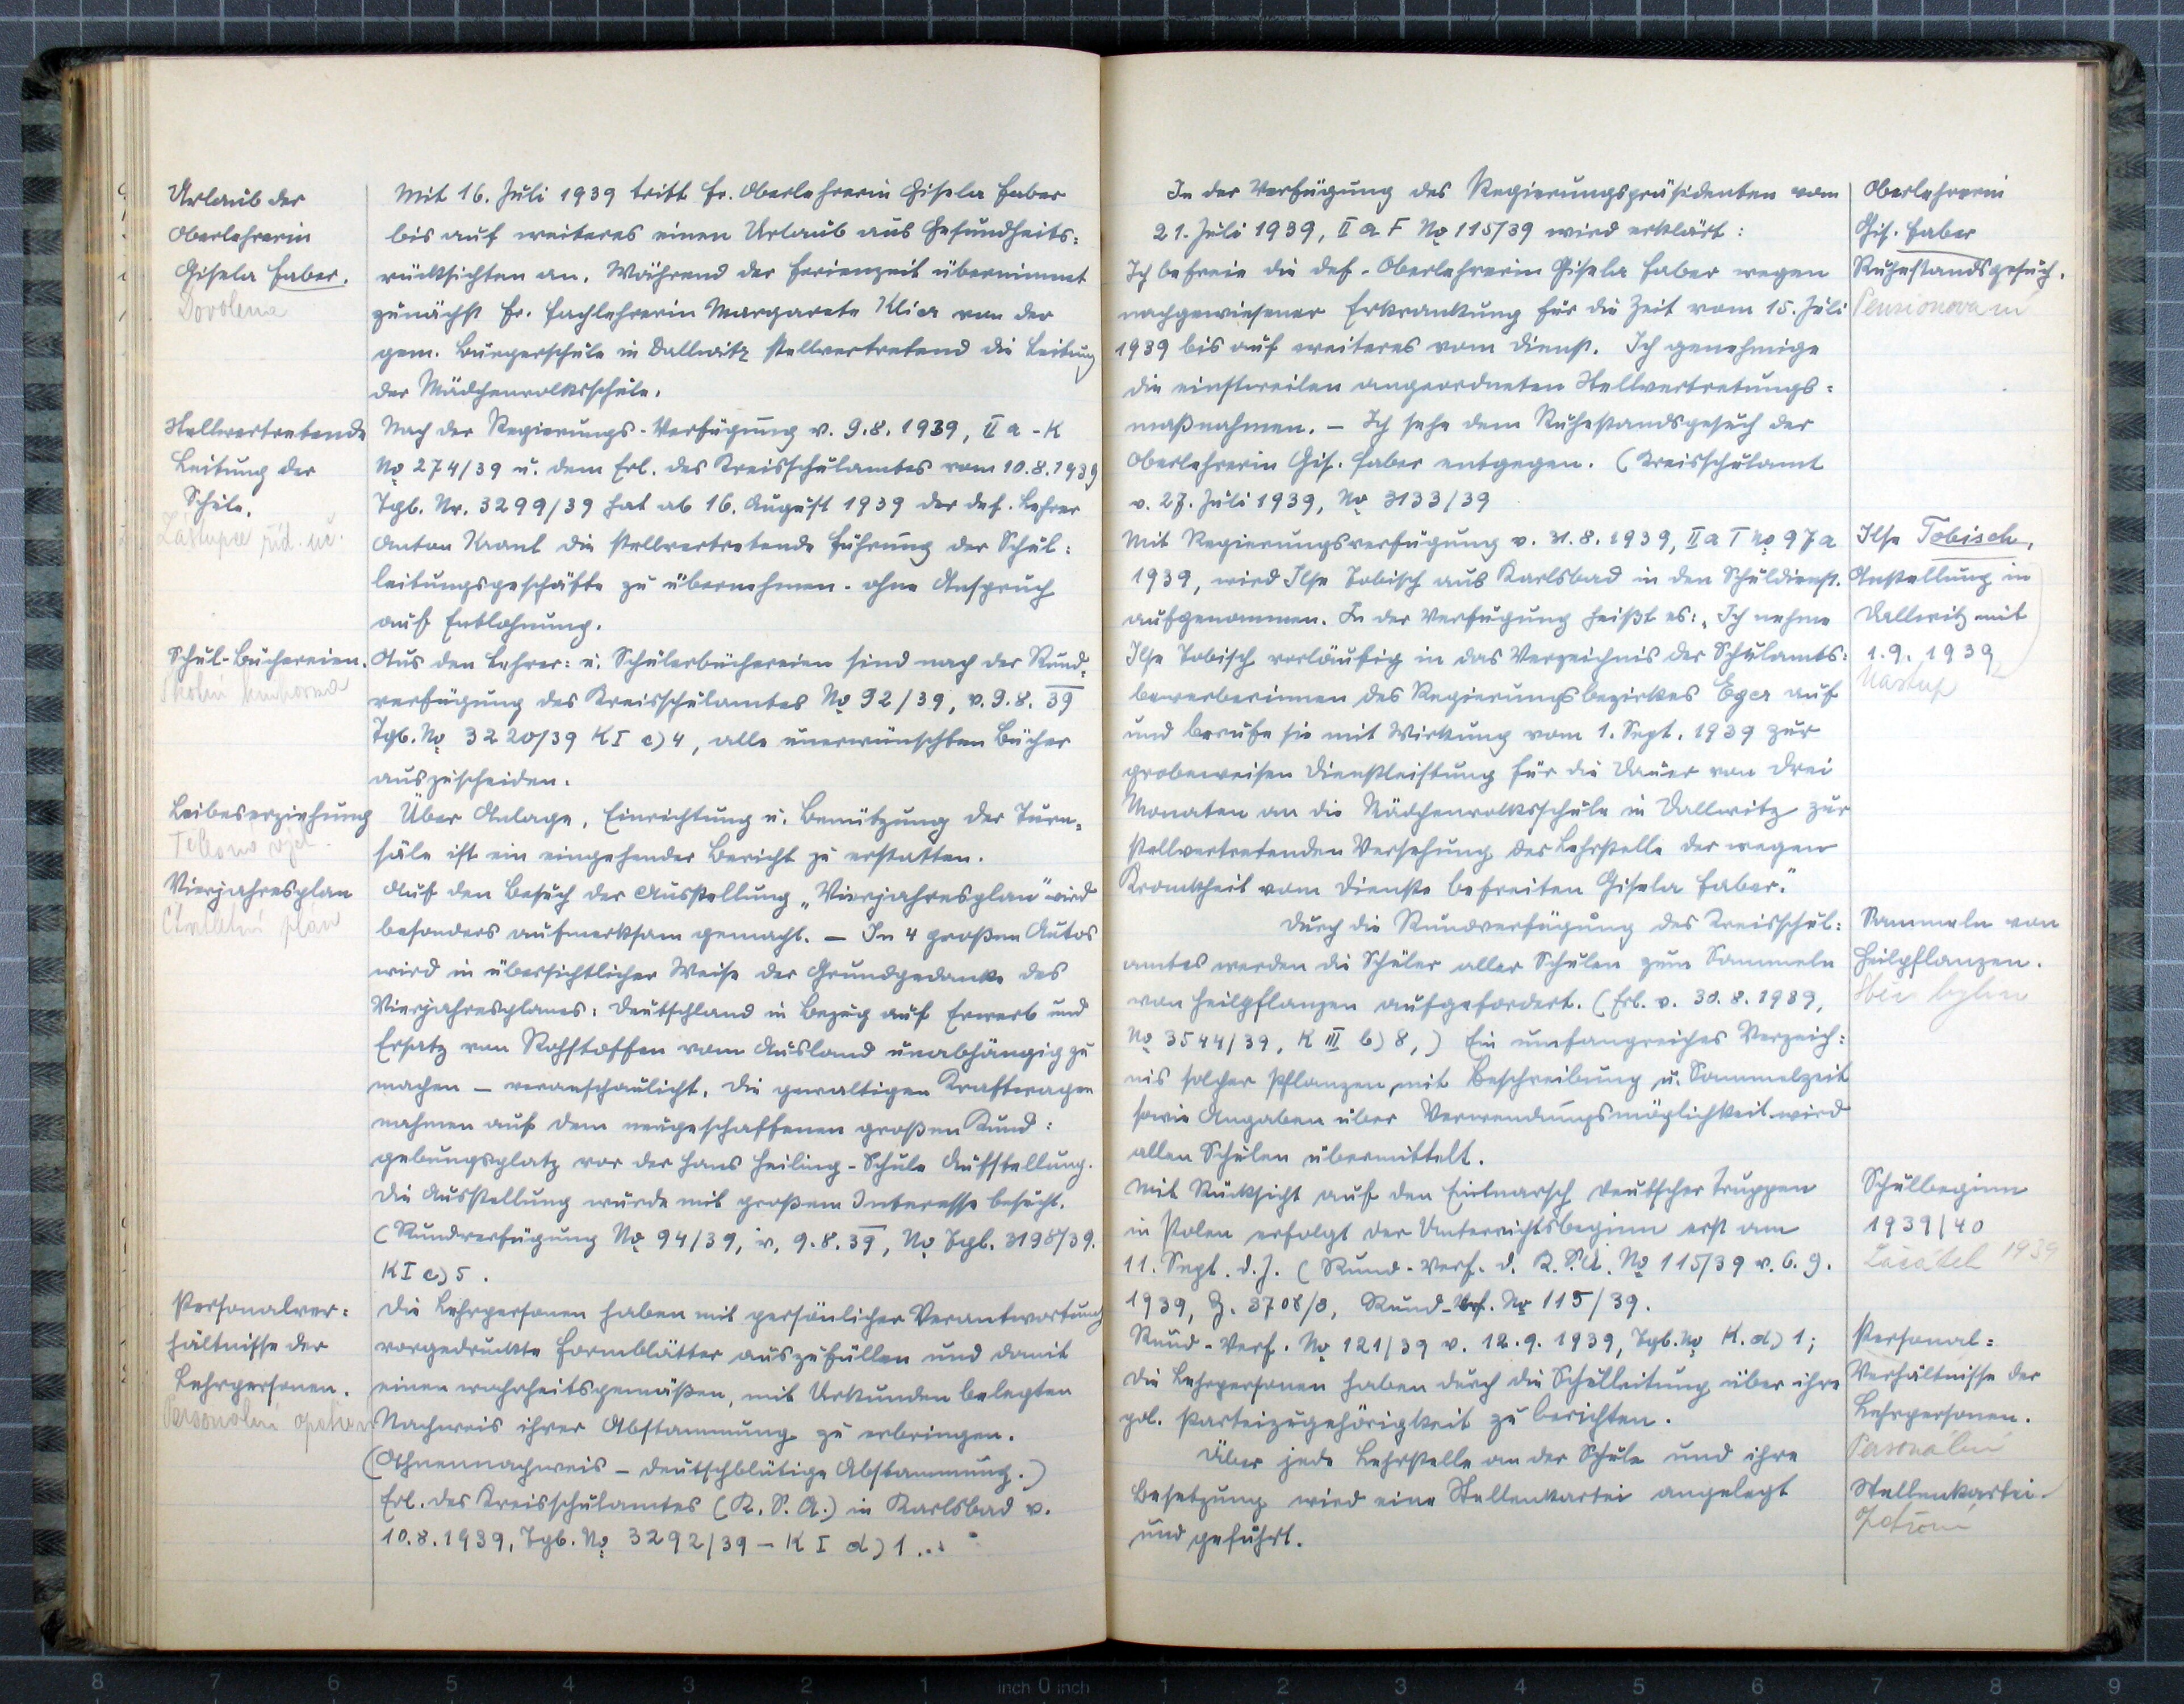 Urlaub der
Oberlehrerin
Gisela Faber.
Dovolená
Mit 16. Juli 1939 tritt Fr. Oberlehrerin Gisela Faber
bis auf weiteres einen Urlaub aus Gesundheits=
rücksichten an. Während der Ferienzeit übernimmt
zunächst Fr. Fachlehrerin Margarete Klier von der
gem. Bürgerschule in Dallwitz stellvertretend die Leitung
der Mädchenvolksschule.
Stellvertretende
Leitung der
Schule.
Zástupce říd. uč.
Nach der Regierungs-Verfügung v. 9.8.1939, II a - K
No 274/39 u. dem Erl. des Kreisschulamtes vom 10.8.1939
Tgb. Nr. 3299/39 hat ab 16. August 1939 der def. Lehrer
Anton Kraul die stellvertretende Führung der Schul=
leitungsgeschäfte zu übernehmen - ohne Anspruch
auf Entlohnung.
Schul-Büchereien.
Školní knihovna
Aus den Lehrer= u. Schülerbüchereien sind nach der Rund=
verfügung des Kreisschulamtes No 92/39, v. 9.8.39
Tgb. No 3220/39 K I c) 4, alle unerwünschten Bücher
auszuscheiden.
Leibeserziehung
Über Anlage, Einrichtung u. Benützung der Turn=
säle ist ein eingehender Bericht zu erstatten.
Vierjahresplan
Čtyřletní plán
Auf den Besuch der Ausstellung „Vierjahresplan" wird
besonders aufmerksam gemacht. — In 4 großen Autos
wird in übersichtlicher Weise der Grundgedanke des
Vierjahresplanes: Deutschland in Bezug auf Erwerb und
Ersatz von Rohstoffen vom Ausland unabhängig zu
machen — veranschaulicht. Die gewaltigen Kraftwagen
nahmen auf dem neugeschaffenen großen Kund=
gebungsplatz vor der Hans Heiling-Schule Aufstellung.
Die Ausstellung wurde mit großem Interesse besucht.
(Rundverfügung No 94/39, v. 9.8.39, No Tgb. 3198/39.
K I c) 5.
Personalver=
hältnisse der
Lehrpersonen.
Personální
Die Lehrpersonen haben mit persönlicher Verantwortung
vorgedruckte Formblätter auszufüllen und damit
einen wahrheitsgemäßen, mit Urkunden belegten
Nachweis ihrer Abstammung zu erbringen.
(Ahnennachweis — deutschblütige Abstammung.)
Erl. des Kreisschulamtes (K. S. A.) in Karlsbad v.
10.8.1939, Tgb. No 3292/39 — K I d) 1..
In der Verfügung des Regierungspräsidenten vom
21. Juli 1939, II a F No 115/39 wird erklärt:
Ich befreie die def. Oberlehrerin Gisela Faber wegen
nachgewiesener Erkrankung für die Zeit vom 15. Juli
1939 bis auf weiteres vom Dienst. Ich genehmige
die einstweilen angeordneten Stellvertretungs=
maßnahmen. — Ich sehe dem Ruhestandsgesuch der
Oberlehrerin Gis. Faber entgegen. (Kreisschulamt
v. 27. Juli 1939, No 3133/39
Oberlehrerin
Gis. Faber
Ruhestandsgesuch.
Pensionovaní
Mit Regierungsverfügung v. 31.8.1939, II a T No 97a
1939, wird Ilse Tobisch aus Karlsbad in den Schuldienst
aufgenommen. In der Verfügung heißt es: „Ich nehme
Ilse Tobisch vorläufig in das Verzeichnis der Schulamts=
bewerberinnen des Regierungsbezirkes Eger auf
und berufe sie mit Wirkung vom 1. Sept. 1939 zur
probeweisen Dienstleistung für die Dauer von drei
Monaten an die Mädchenvolksschule in Dallwitz zur
stellvertretenden Versehung der Lehrstelle der wegen
Krankheit vom Dienste befreiten Gisela Faber."
Ilse Tobisch,
Anstellung in
Dallwitz mit
1.9.1939
Nástup
Durch die Rundverfügung des Kreisschul=
amtes werden die Schüler aller Schulen zum Sammeln
von Heilpflanzen aufgefordert. (Erl. v. 30.8.1939,
No 3544/39, K III b) 8,) Ein umfangreiches Verzeich=
nis solcher Pflanzen mit Beschreibung u. Sammelzeit
sowie Angaben über Verwendungsmöglichkeit wird
allen Schulen übermittelt.
Sammeln von
Heilpflanzen.
Sběr bylin
Mit Rücksicht auf den Einmarsch deutscher Truppen
in Polen erfolgt der Unterrichtsbeginn erst am
11. Sept. d. J. (Rund-Verf. d. K.S.A. No 115/39 v. 6.9.
1939, Z. 3708/8, Rund-Verf. No 115/39.
Schulbeginn
1939/40
Začátek 1939
Rund-Verf. No 121/39 v. 12.9.1939, Tgb. No K. d) 1;
Die Lehrpersonen haben durch die Schulleitung über ihre
pol. Parteizugehörigkeit zu berichten.
Personal=
Verhältnisse der
Lehrpersonen.
Personální
Über jede Lehrstelle an der Schule und ihre
Besetzung wird eine Stellenkartei angelegt
und geführt.
Stellenkartei.